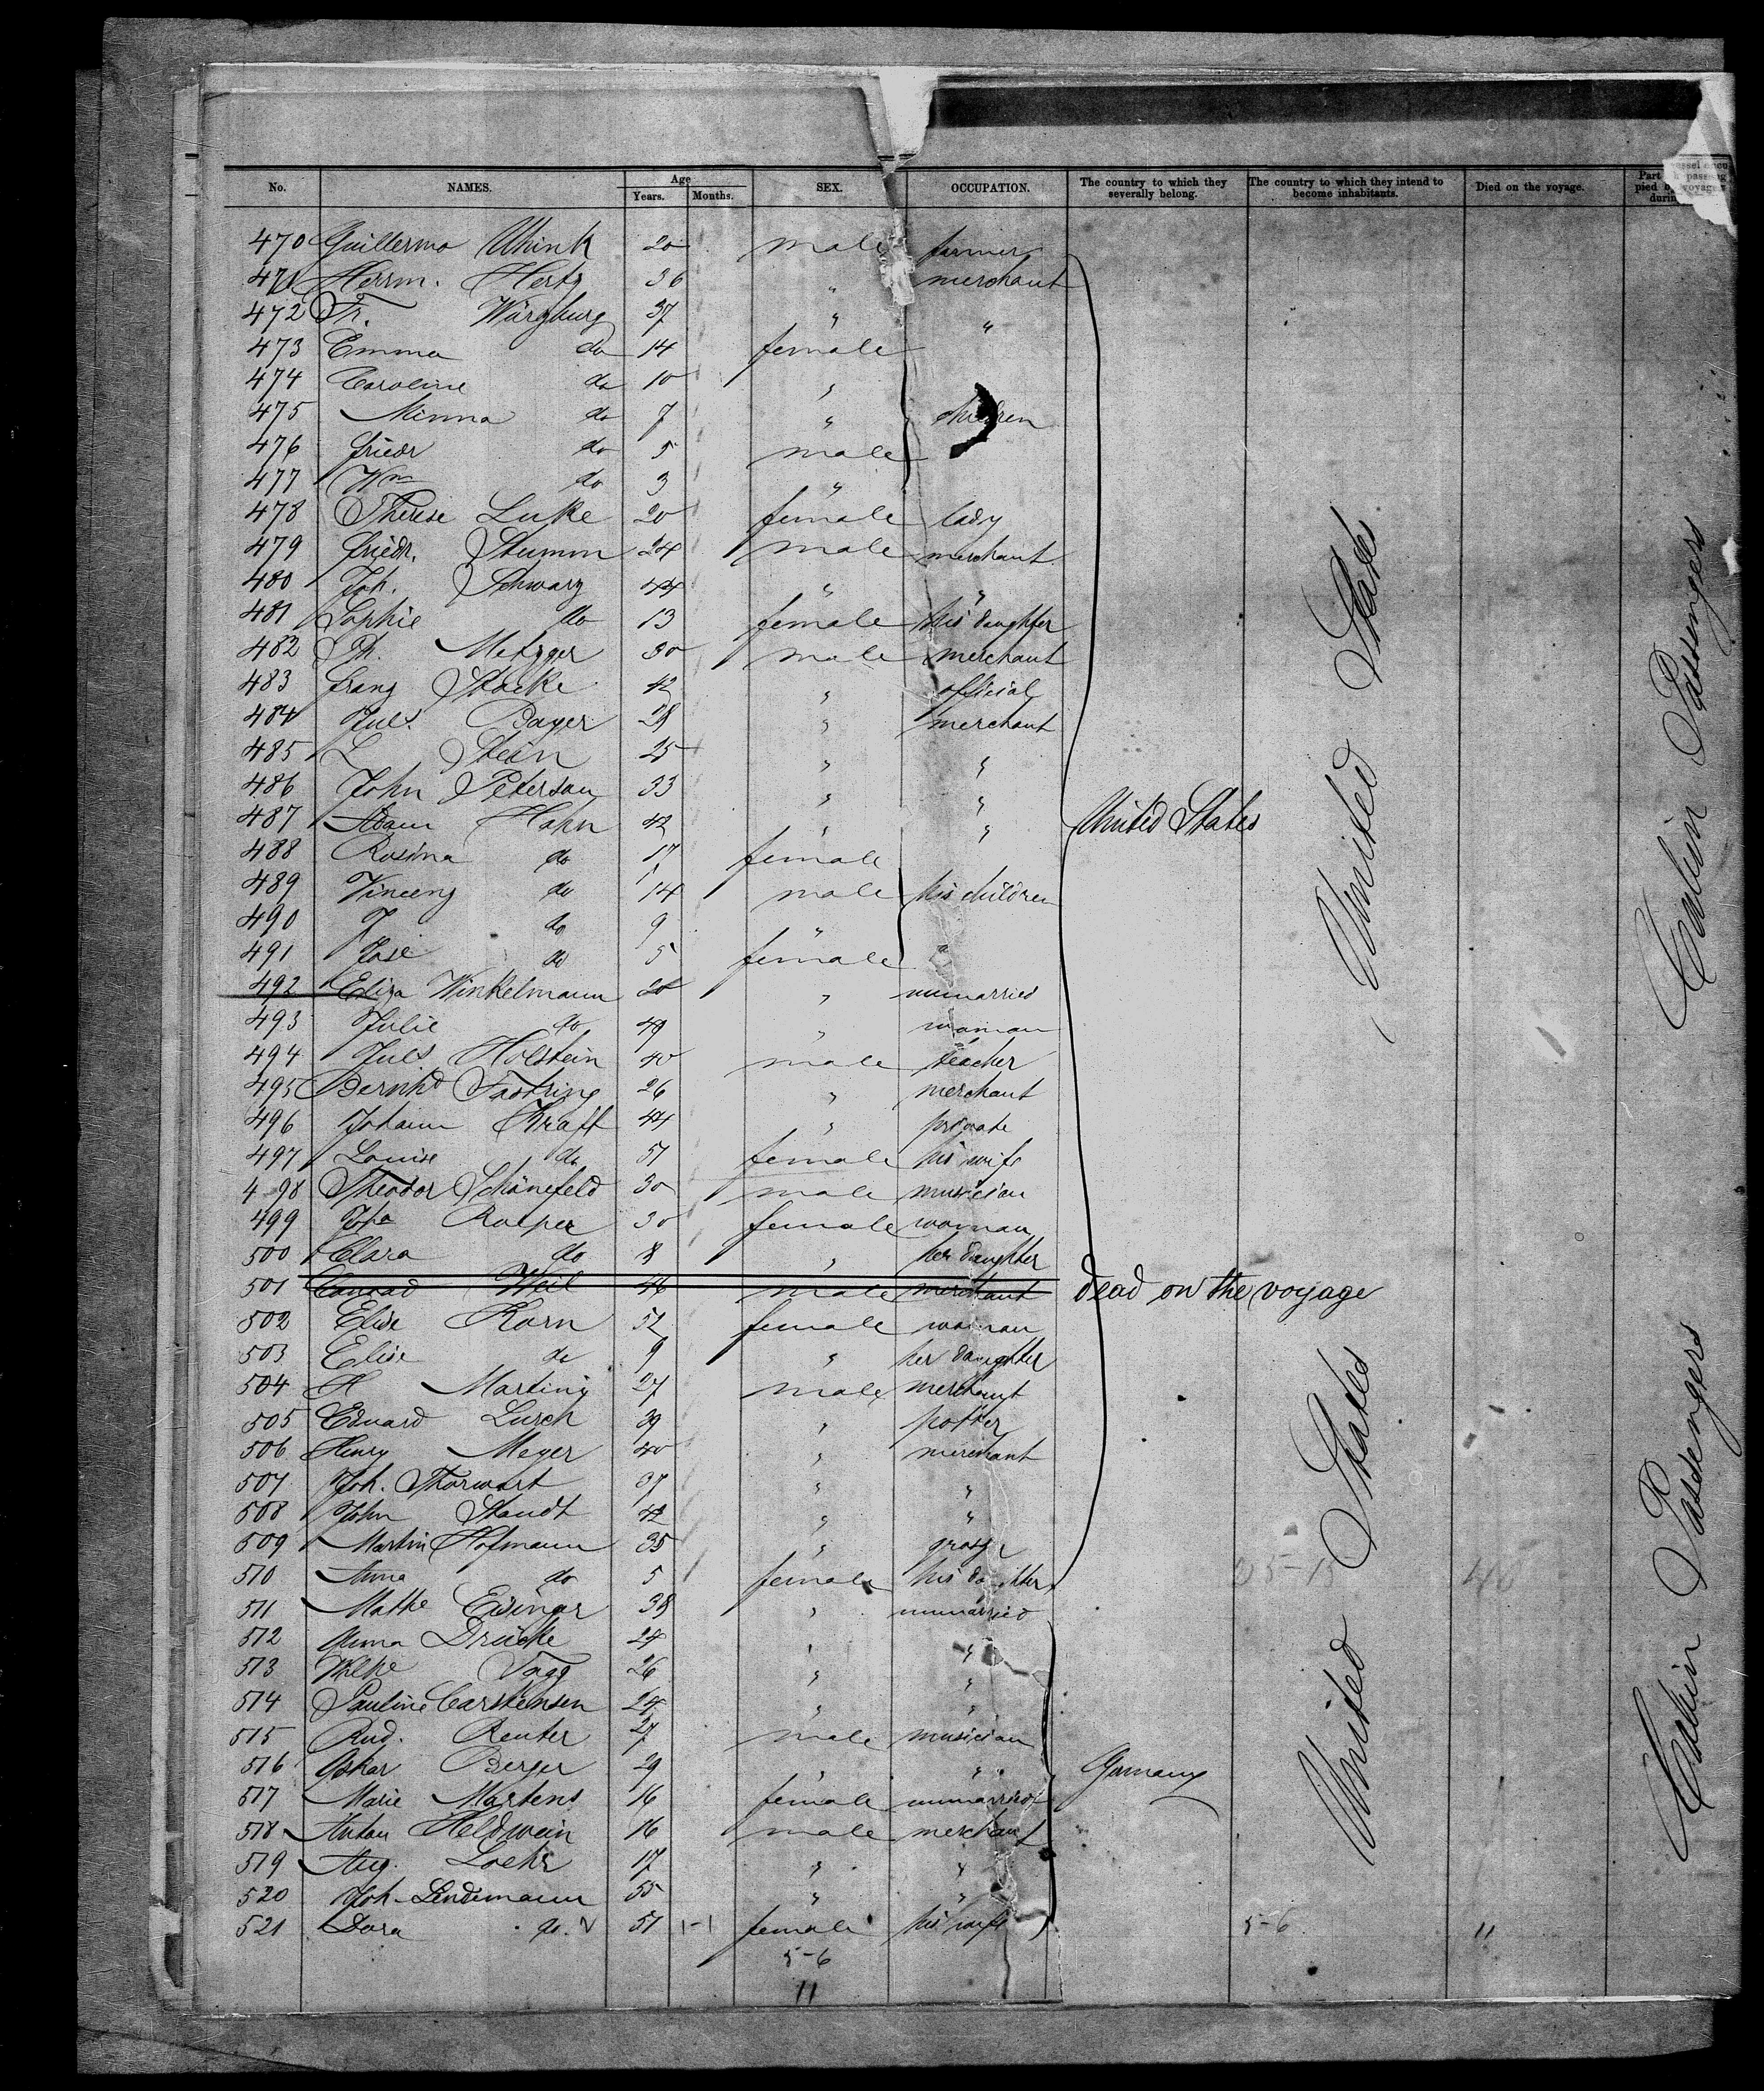 No. NAMES. Age Years. Months. SEX. OCCUPATION. The country to which they severally belong. The country to which they intend to become inhabitants. Died on the voyage. Part pied
470 Guillermo Uhink 20 male farmer
471 Herrm. Hertz 36 " merchant
472 Fr. Würzburg 37 " "
473 Emma do 14 female
474 Caroline do 10 "
475 Minna do 7 " children
476 Friedr do 5 male
477 Wm do 3 "
478 Therese Luke 20 female lady
479 Friedr. Stumm 24 male merchant
480 Joh. Schwarz 44 " "
481 Sophie do 13 female his daughter
482 Ph. Metzger 30 male merchant
483 Franz Stocke 42 " official
484 Juls. Bayer 28 " merchant
485 L Stein 25 " "
486 John Petersen 33 " "
487 Adam Hahn 42 " " United States
488 Rosina do 17 female
489 Vincenz do 14 male his children
490 J do 9 "
491 José do 5 female
492 Eliza Winkelmann 20 " unmarried
493 Julie do 49 " woman
494 Juls Holstein 40 male teacher
495 Bernhd Fastring 26 " merchant
496 Johann Kraft 44 " private
497 Louise do 51 female his wife
498 Theodor Schönefeld 30 male musician
499 Joha 30 female woman
500 Clara do 8 " her daughter
501 Conrad Weil 46 male merchant dead on the voyage
502 Elise Korn 52 female woman
503 Elise do 9 " her daughter
504 H Marting 27 male merchant
505 Eduard Lurch 39 " potter
506 Henry Meyer 40 " merchant
507 Joh. Thorwart 37 " "
508 John Staudt 42 " "
509 Martin Hofmann 35 "
510 Anna do 5 female his daughter
511 Mathe Eisinger 38 " unmarried
512 Anna Drücke 24 " "
513 26 " "
514 Pauline Carstensen 24 " "
515 Rud. Reuter 27 male musician
516 Oskar Berger 29 " " Germany
517 Marie Martens 16 female unmarried
518 Anton Heldwein 16 male merchant
519 Aug. Loehr 17 " "
520 Joh. Lindemann 55 " "
521 Dora do. 51 1-1 female his wife 5-6 11
5-6
11
United States
United States
Cabin Passengers
Cabin Passengers